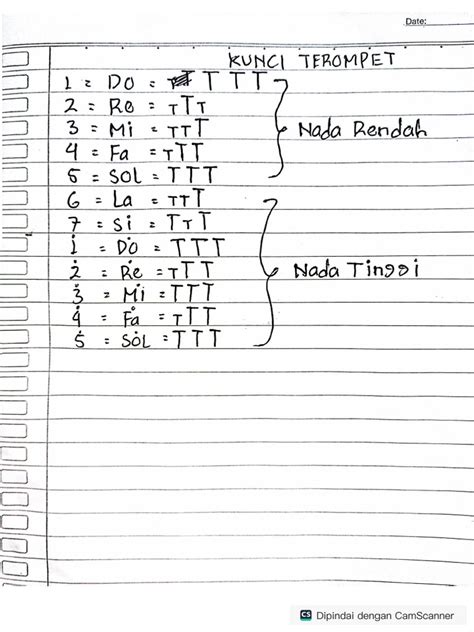 Date:
KUNCI TEROMPET
1 = Do = T T T
2 = Re = T T T
3 = Mi = T T T
4 = Fa = T T T
5 = SOL = T T T
Nada Rendah
6 = La = T T T
7 = Si = T T T
1̇ = Ḋo = T T T
2̇ = Ṙe = T T T
3̇ = Ṁi = T T T
4̇ = Ḟa = T T T
5̇ = SȮL = T T T
Nada Tinggi
CS Dipindai dengan CamScanner